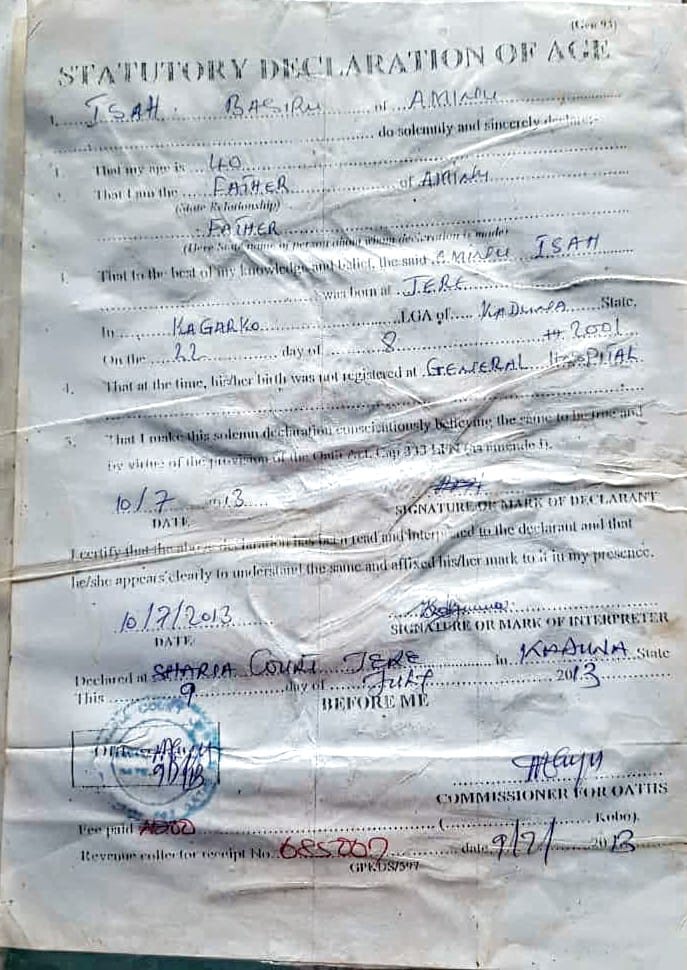 (Gen 93)
STATUTORY DECLARATION OF AGE
I, ISAH BASIRU of AMINU
do solemnly and sincerely declare:-
1. That my age is 40
That I am the FATHER of AMINU
(State Relationship)
FATHER
(Here State name of person about whom declaration is made)
That to the best of my knowledge and belief, the said AMINU ISAH
was born at JERE
In KAGARKO LGA of KADUNA State,
On the 22 day of 8 2001
4. That at the time, his/her birth was not registered at GENERAL HOSPITAL
5. That I make this solemn declaration consciantiously believing the same to be true and
by virtue of the provision of the Oath Act, Cap 333 LFN (as amended).
10/7 2013
SIGNATURE OR MARK OF DECLARANT
DATE
I certify that the above declaration has been read and interpreted to the declarant and that
he/she appears clearly to understand the same and affixed his/her mark to it in my presence.
10/7/2013
SIGNATURE OR MARK OF INTERPRETER
DATE
Declared at SHARIA COURT JERE in KADUNA State
This 9 day of JULY 2013
BEFORE ME
COMMISSIONER FOR OATHS
Fee paid ( Kobo).
Revenue collector receipt No. 685007 date 9/7/ 2013
GPK/DS/597